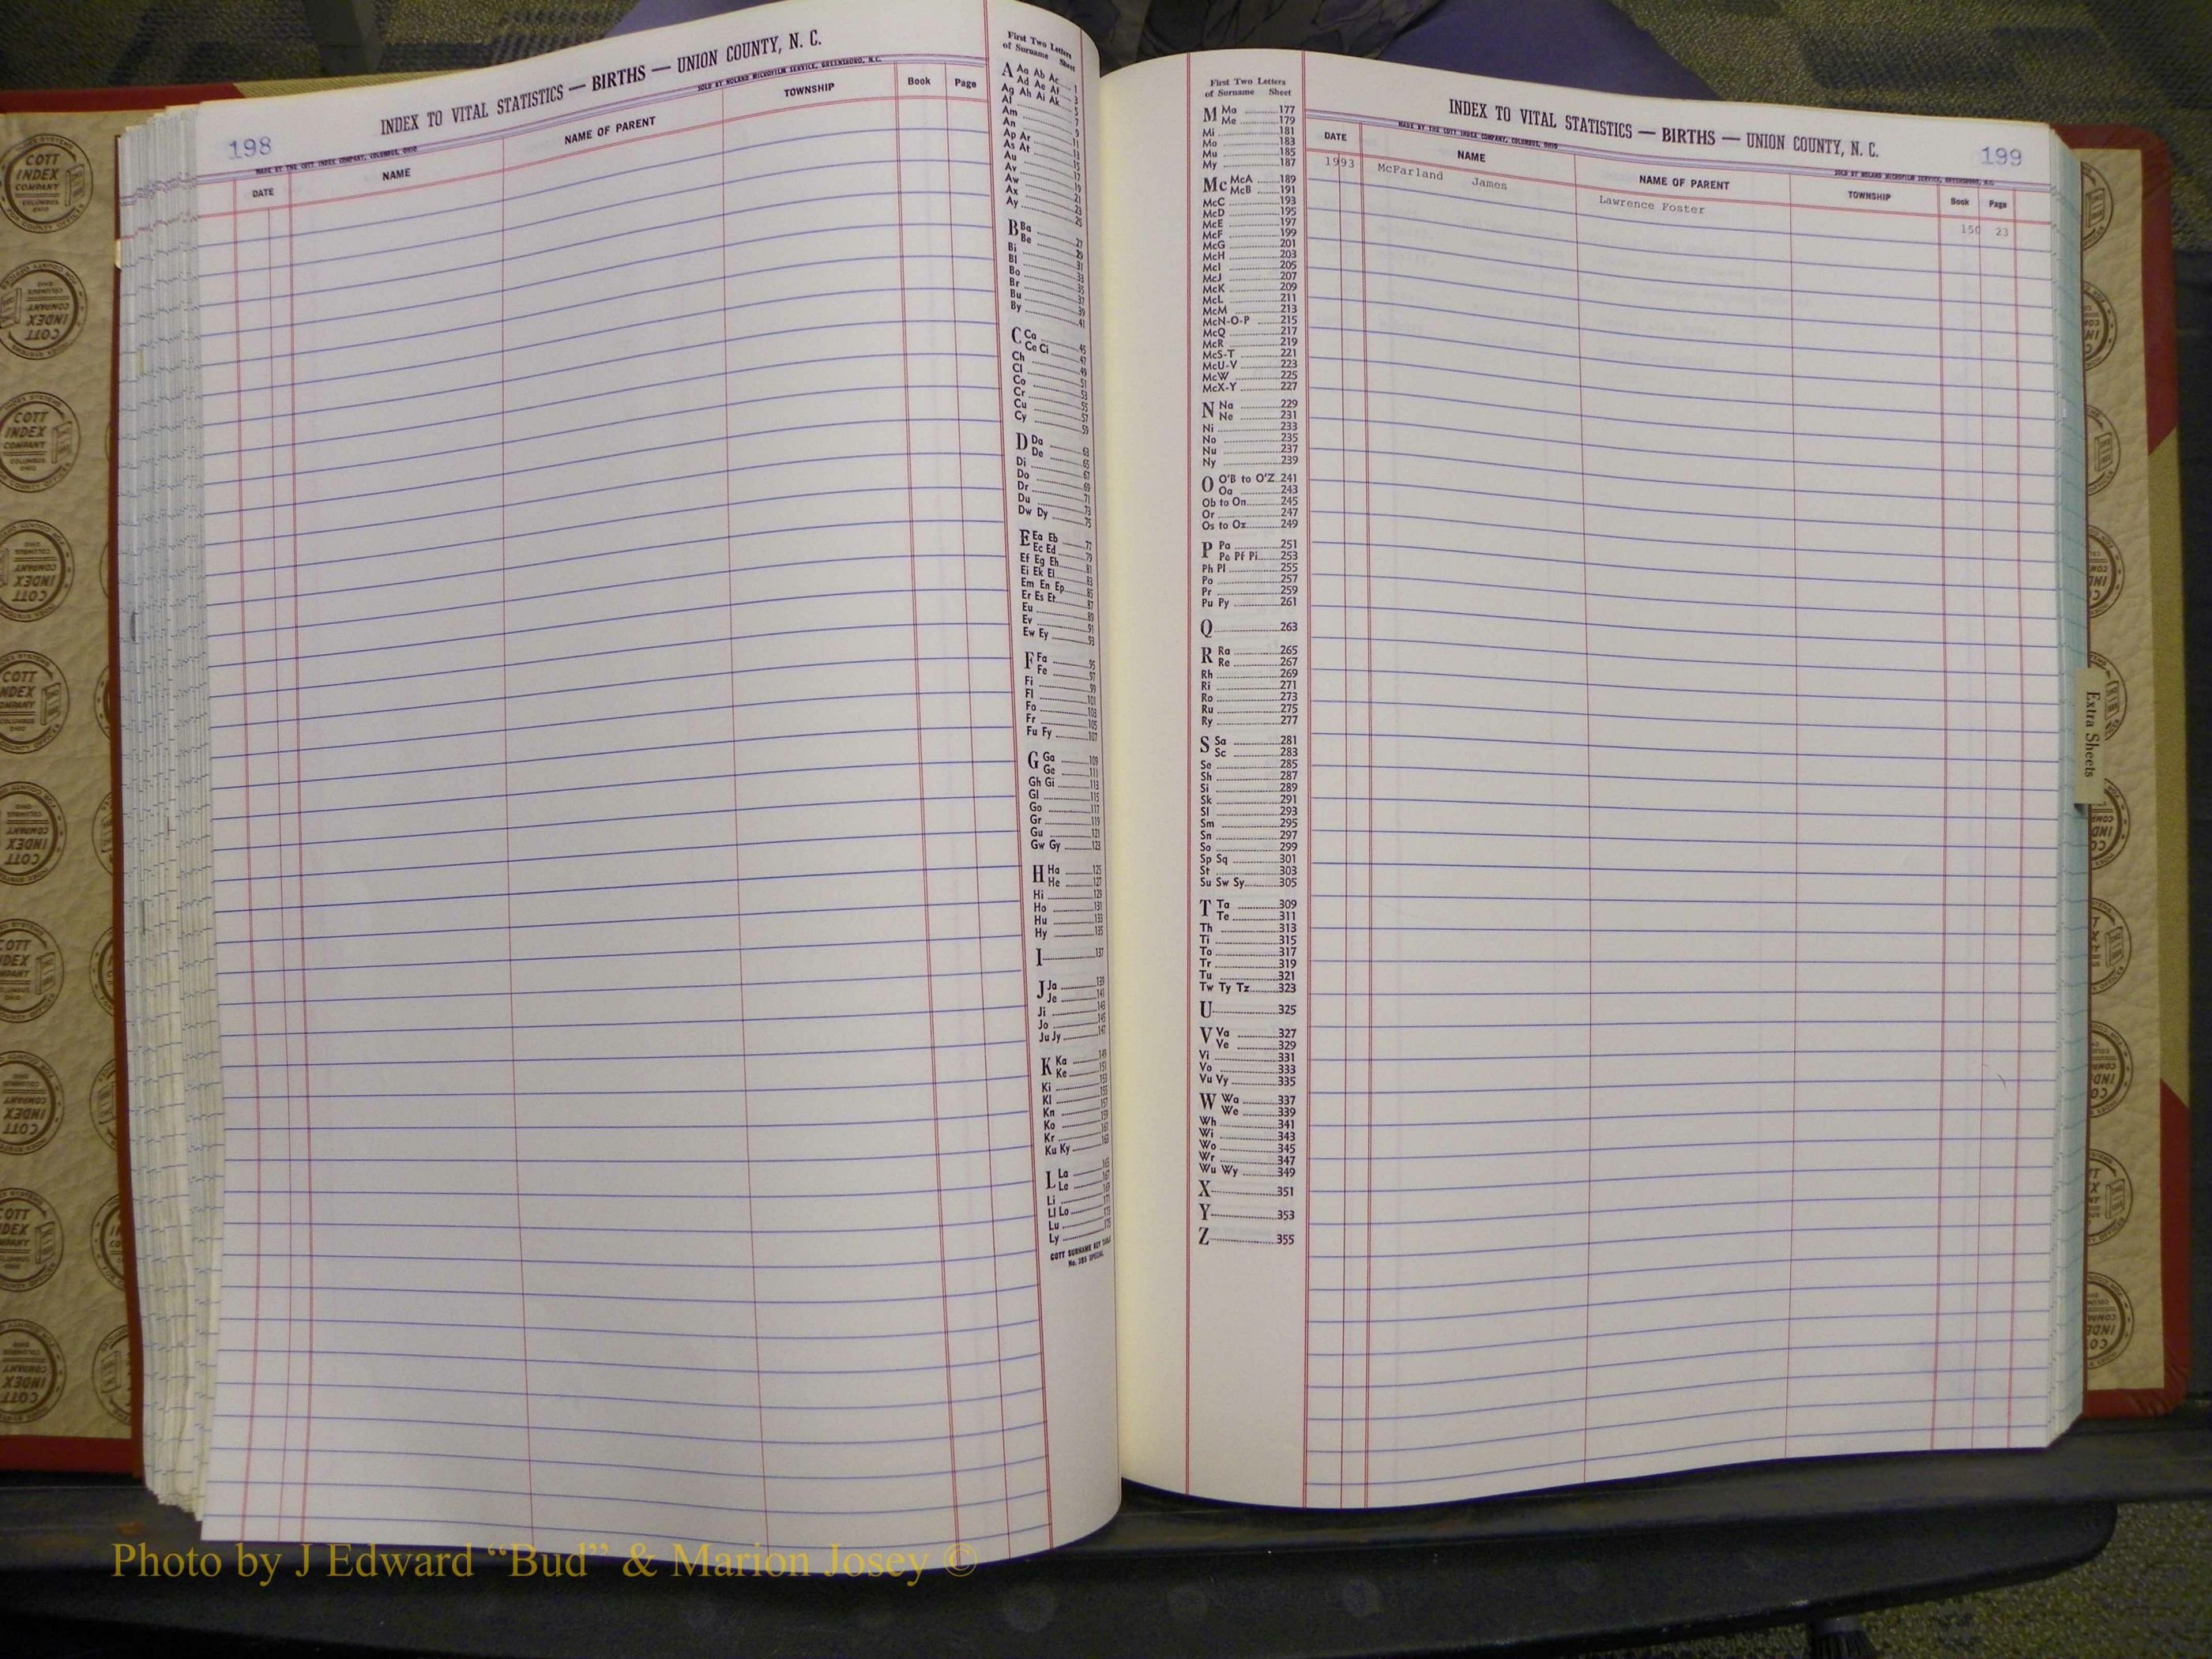 198
INDEX TO VITAL STATISTICS — BIRTHS — UNION COUNTY, N. C.
MADE BY THE COTT INDEX COMPANY, COLUMBUS, OHIO
SOLD BY NOLAND MICROFILM SERVICE, GREENSBORO, N.C.
DATE NAME NAME OF PARENT TOWNSHIP Book Page
First Two Letters
of Surname Sheet
A Aa Ab Ac 1
Ad Ae Af 3
Ag Ah Ai Ak 5
Al 7
Am 9
An 11
Ap Ar 13
As At 15
Au 17
Av 19
Aw 21
Ax 23
Ay 25
B Ba 27
Be 29
Bi 31
Bl 33
Bo 35
Br 37
Bu 39
By 41
C Ca 45
Ce Ci 47
Ch 49
Cl 51
Co 53
Cr 55
Cu 57
Cy 59
D Da 63
De 65
Di 67
Do 69
Dr 71
Du 73
Dw Dy 75
E Ea Eb 77
Ec Ed 79
Ef Eg Eh 81
Ei Ek El 83
Em En Ep 85
Er Es Et 87
Eu 89
Ev 91
Ew Ey 93
F Fa 95
Fe 97
Fi 99
Fl 101
Fo 103
Fr 105
Fu Fy 107
G Ga 109
Ge 111
Gh Gi 113
Gl 115
Go 117
Gr 119
Gu 121
Gw Gy 123
H Ha 125
He 127
Hi 129
Ho 131
Hu 133
Hy 135
I 137
J Ja 139
Je 141
Ji 143
Jo 145
Ju Jy 147
K Ka 149
Ke 151
Ki 153
Kl 155
Kn 157
Ko 159
Kr 161
Ku Ky 163
L La
Le
Li
Ll Lo
Lu
Ly
COTT SURNAME KEY TABLE
No. 383 SPECIAL
First Two Letters
of Surname Sheet
M Ma 177
Me 179
Mi 181
Mo 183
Mu 185
My 187
Mc McA 189
McB 191
McC 193
McD 195
McE 197
McF 199
McG 201
McH 203
McI 205
McJ 207
McK 209
McL 211
McM 213
McN-O-P 215
McQ 217
McR 219
McS-T 221
McU-V 223
McW 225
McX-Y 227
N Na 229
Ne 231
Ni 233
No 235
Nu 237
Ny 239
O O'B to O'Z 241
Oa 243
Ob to On 245
Or 247
Os to Oz 249
P Pa 251
Pe Pf Pi 253
Ph Pl 255
Po 257
Pr 259
Pu Py 261
Q 263
R Ra 265
Re 267
Rh 269
Ri 271
Ro 273
Ru 275
Ry 277
S Sa 281
Sc 283
Se 285
Sh 287
Si 289
Sk 291
Sl 293
Sm 295
Sn 297
So 299
Sp Sq 301
St 303
Su Sw Sy 305
T Ta 309
Te 311
Th 313
Ti 315
To 317
Tr 319
Tu 321
Tw Ty Tz 323
U 325
V Va 327
Ve 329
Vi 331
Vo 333
Vu Vy 335
W Wa 337
We 339
Wh 341
Wi 343
Wo 345
Wr 347
Wu Wy 349
X 351
Y 353
Z 355
INDEX TO VITAL STATISTICS — BIRTHS — UNION COUNTY, N. C.
199
MADE BY THE COTT INDEX COMPANY, COLUMBUS, OHIO
SOLD BY NOLAND MICROFILM SERVICE, GREENSBORO, N.C.
DATE NAME NAME OF PARENT TOWNSHIP Book Page
1993 McFarland James Lawrence Foster 150 23
Extra Sheets
COTT
INDEX
COMPANY
COLUMBUS
OHIO
Photo by J Edward “Bud” & Marion Josey ©